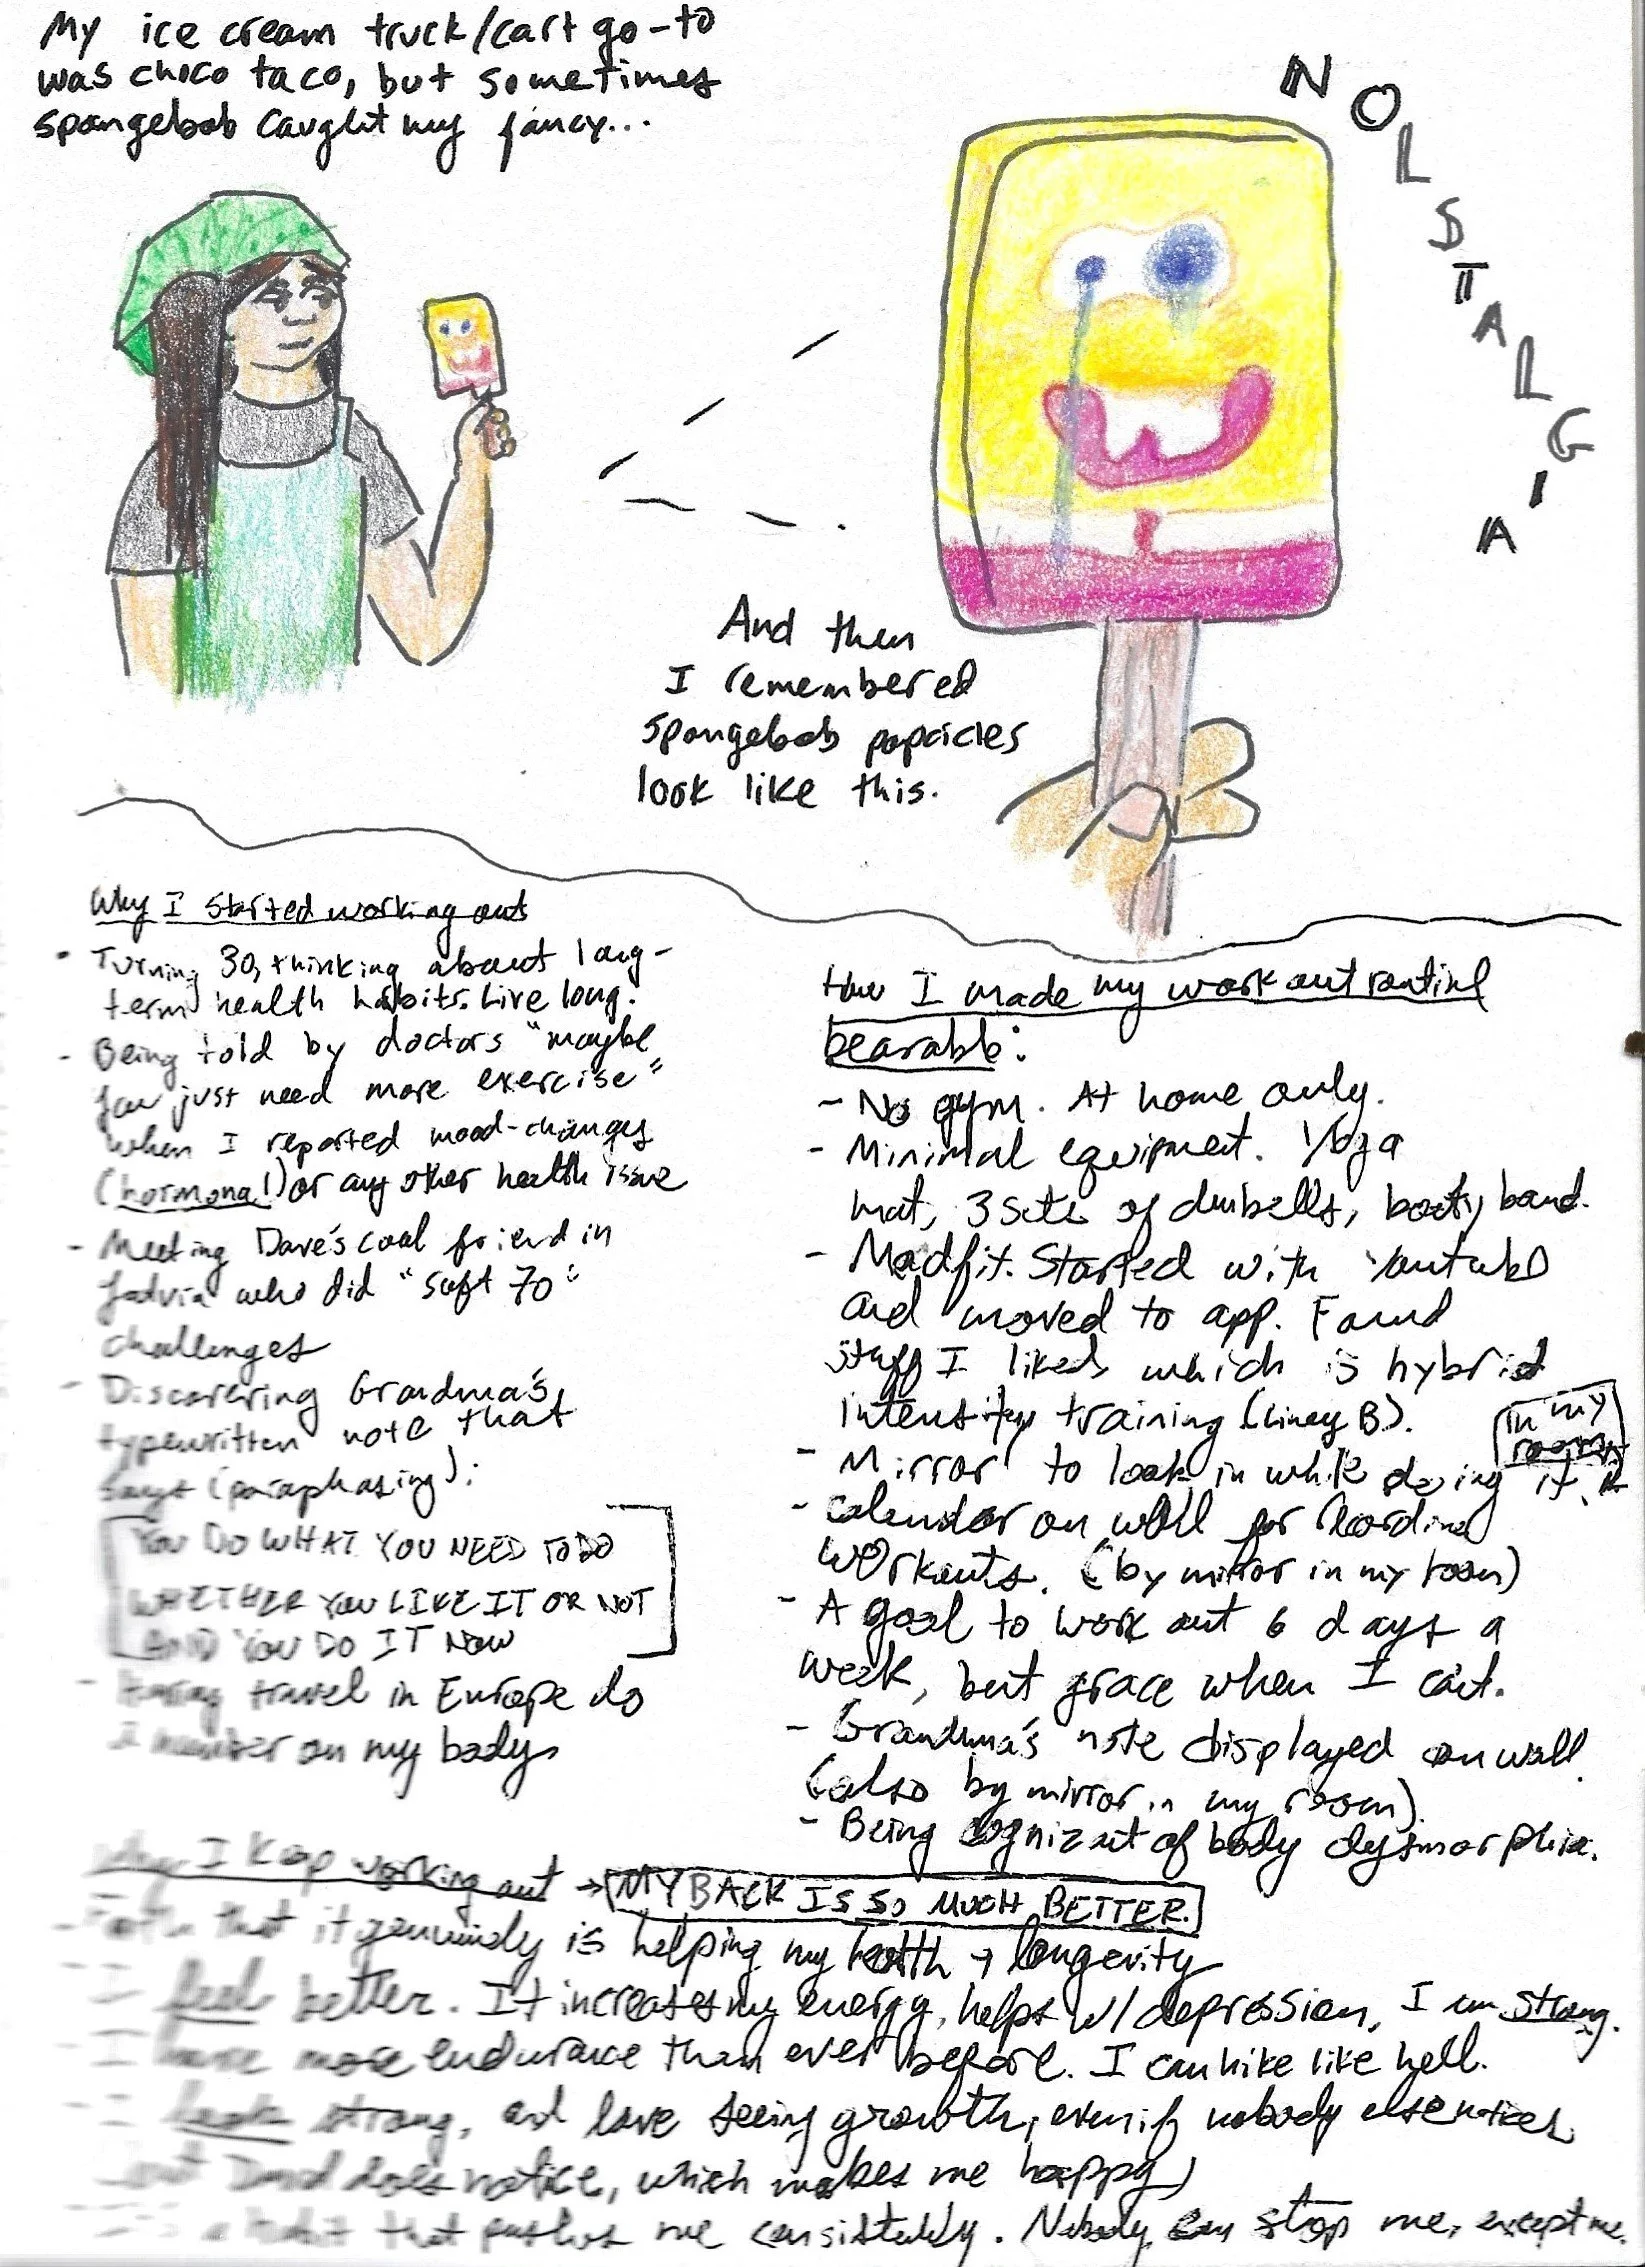 My ice cream truck/cart go-to
was choco taco, but sometimes
spongebob caught my fancy...
NOLSTALGIA
And then
I remembered
spongebob popcicles
look like this.
Why I started working out
- Turning 30, thinking about long-
term health habits. Live long.
- Being told by doctors "maybe
you just need more exercise"
when I reported mood-changes
(hormonal) or any other health issue
- Meeting Dave's cool friend in
who did "soft 70"
challenges
- Discovering Grandma's
typewritten note that
says (paraphasing):
YOU DO WHAT YOU NEED TO DO
WHETHER YOU LIKE IT OR NOT
AND YOU DO IT NOW
- Having travel in Europe do
a number on my body.
How I made my workout routine
bearable:
- No gym. At home only.
- Minimal equipment. Yoga
mat, 3 sets of dumbells, booty band.
- Madfit. Started with Youtube
and moved to app. Found
stuff I liked which is hybrid
intensity training (Liney B).
- Mirror to look in while doing it
in my
room
- Calendar on wall for recording
workouts. (by mirror in my room)
- A goal to work out 6 days a
week, but grace when I cant.
- Grandma's note displayed on wall
(also by mirror in my room).
- Being cognizent of body dysmorphia.
Why I keep working out → MY BACK IS SO MUCH BETTER.
- Faith that it genuinely is helping my health + longevity
- I feel better. It increases my energy, helps w/ depression, I am strong.
- I have more endurance than ever before. I can hike like hell.
- I look strong, and love seeing growth, even if nobody else notices
but David does notice, which makes me happy)
- It's a habit that pushes me consistently. Nobody can stop me, except me.